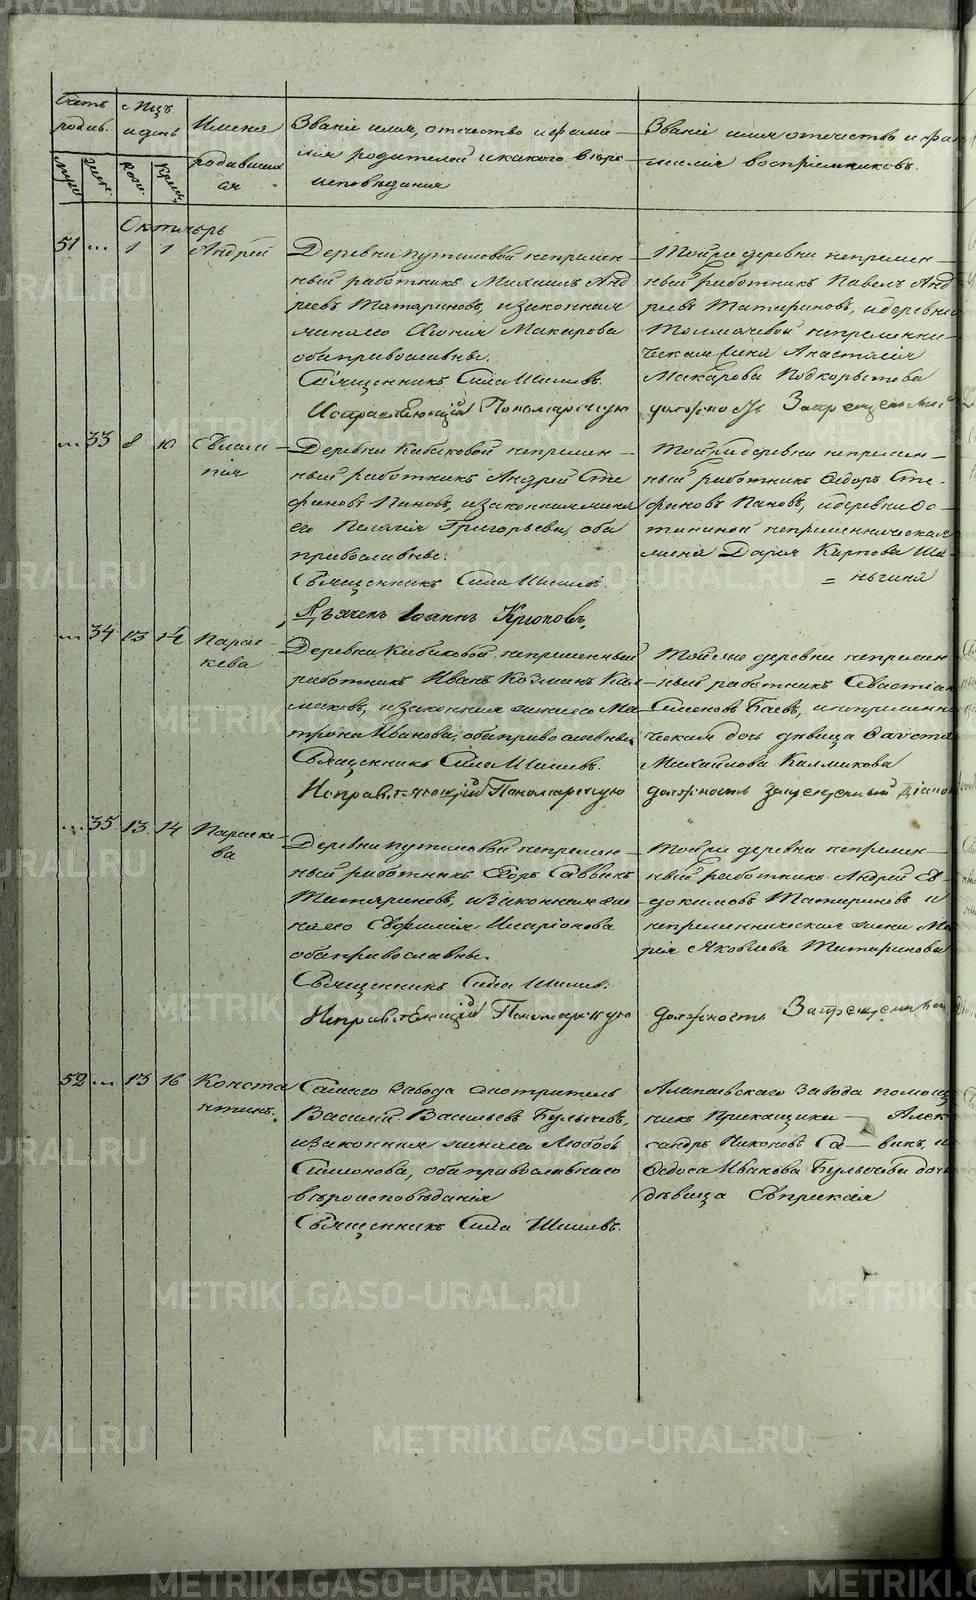 METRIKI.GASO-URAL.RU
Званіе имя, отечество и фами-
лія родителей и какого вѣро
исповѣданія
Званіе имя отечество и фа
милія воспріемниковъ.
Имена
родивших
ся
Октябрь
51 ... 1 1 Андрей
Деревни Путиловой непремен-
ный работникъ Михаилъ Анд
реевъ Татариновъ, и законная
жена его Макарова
оба православные.
Священникъ Сила Шишевъ.
Исправляющій Пономарскую
Той же деревни непремен-
ный работникъ Павелъ Анд
реевъ Татариновъ, и деревни
Толмачевой непременни-
ческая жена Анастасія
Макарова Подкорытова
должность Запрещенный
... 33 8 10 Евлам-
пія
Деревни Кабаковой непремен-
ный работникъ Андрей Сте
фановъ Пановъ, и законная жена
его Пелагія Григорьева, оба
православные.
Священникъ Сила Шишевъ.
Дьячекъ Іоаннъ Крюковъ,
Той же деревни непремен-
ный работникъ Ѳедоръ Сте-
фановъ Пановъ, и деревни
непременническая
жена Дарья Карпова Ша
= ньгина
... 34 13 14 Парас-
кева
Деревни Кабаковой непременный
работникъ Иванъ Козминъ Кал
маковъ, и законная жена его Ма
трона Иванова, оба православные
Священникъ Сила Шишевъ.
Исправляющій Пономарскую
Той же деревни непремен
ный работникъ Севастіан
Семеновъ Баевъ, и непременни
ческая дочь девица
Михайлова Калмакова
должность запрещенный Діакон
... 35 13 14 Параске-
ва
Деревни Путиловой непремен-
ный работникъ Егоръ Саввинъ
Татариновъ, и законная же
на его Евфимія Иларіонова
оба православные.
Священникъ Сила Шишевъ.
Исправляющій Пономарскую
Той же деревни непремен-
ный работникъ Андрей Ев-
докимовъ Татариновъ и
непременническая жена Ма
рія Яковлева Татаринова
должность Запрещенный
52 ... 13 16 Конста
нтинъ.
Самаго Завода смотритель
Василій Васильевъ Булычевъ,
и законная жена его Любовь
Симонова, оба православнаго
вѣроисповѣданія
Священникъ Сила Шишевъ.
Алапаевскаго Завода помощ
никъ Прикащика — Алек
сандръ Никоновъ
Ѳедоса Иванова Булычева дочь
дѣвица Евпраксія